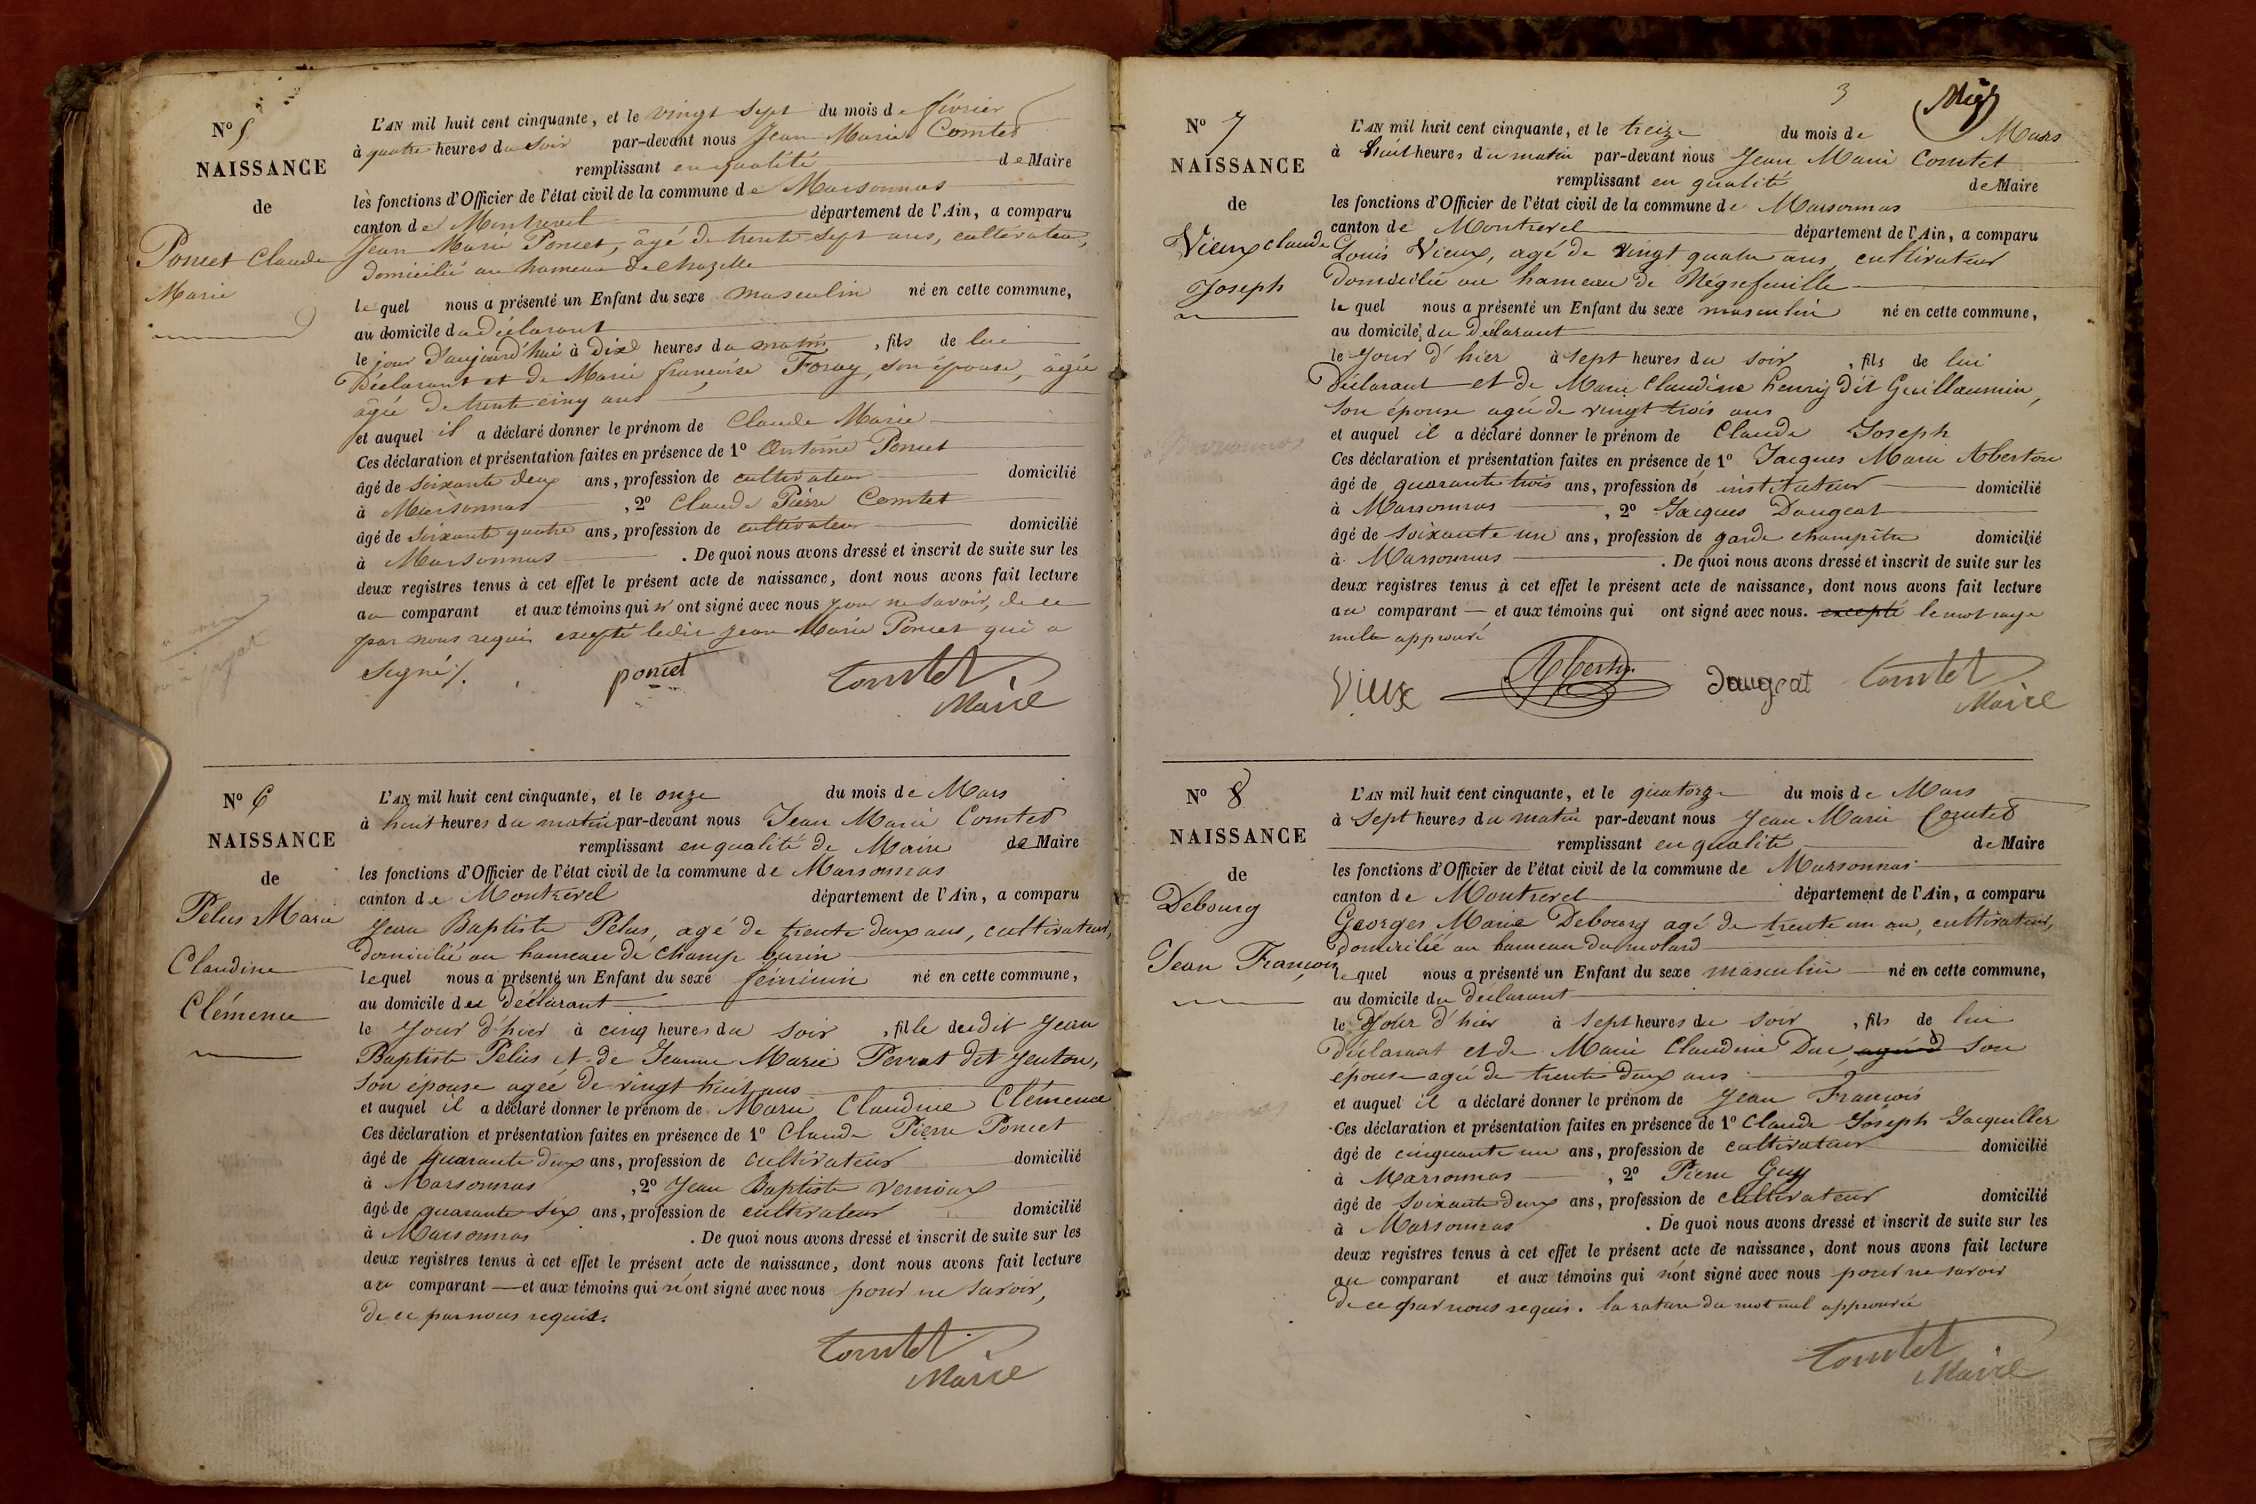 N° 5
NAISSANCE
de
Poncet Claude
Marie
L'AN mil huit cent cinquante, et le vingt sept du mois de février
à quatre heures du soir par-devant nous Jean Marie Comtet
remplissant en qualité de Maire
les fonctions d'Officier de l'état civil de la commune de Marsonnas
canton de Montrevel département de l'Ain, a comparu
Jean Marie Poncet, âgé de trente sept ans, cultivateur,
domicilié au hameau de Chazelle
lequel nous a présenté un Enfant du sexe masculin né en cette commune,
au domicile du déclarant
le jour d'aujourd'hui à dix heures du matin, fils de lui
Déclarant et de Marie françoise Foray, son épouse, âgée
âgée de trente cinq ans
et auquel il a déclaré donner le prénom de Claude Marie
Ces déclaration et présentation faites en présence de 1° Antoine Poncet
âgé de soixante deux ans, profession de cultivateur domicilié
à Marsonnas, 2° Claude Pierre Comtet
âgé de soixante quatre ans, profession de cultivateur domicilié
à Marsonnas. De quoi nous avons dressé et inscrit de suite sur les
deux registres tenus à cet effet le présent acte de naissance, dont nous avons fait lecture
au comparant et aux témoins qui n'ont signé avec nous pour ne savoir, de ce
par nous requis excepté ledit Jean Marie Poncet qui a
signé /.
poncet Comtet
Maire
N° 6
NAISSANCE
de
Pelus Marie
Claudine
Clémence
L'AN mil huit cent cinquante, et le onze du mois de Mars
à huit heures du matin par-devant nous Jean Marie Comtet
remplissant en qualité de Maire de Maire
les fonctions d'Officier de l'état civil de la commune de Marsonnas
canton de Montrevel département de l'Ain, a comparu
Jean Baptiste Pelus, agé de trente deux ans, cultivateur,
domicilié au hameau de Champ burin
lequel nous a présenté un Enfant du sexe féminin né en cette commune,
au domicile du Déclarant
le jour d'hier à cinq heures du soir, fille dudit Jean
Baptiste Pelus et de Jeanne Marie Perrat dit Jeuton,
son épouse agée de vingt huit ans
et auquel il a déclaré donner le prénom de Marie Claudine Clémence
Ces déclaration et présentation faites en présence de 1° Claude Pierre Poncet
âgé de quarante deux ans, profession de cultivateur domicilié
à Marsonnas, 2° Jean Baptiste Vernoux
âgé de quarante six ans, profession de cultivateur domicilié
à Marsonnas. De quoi nous avons dressé et inscrit de suite sur les
deux registres tenus à cet effet le présent acte de naissance, dont nous avons fait lecture
au comparant et aux témoins qui n'ont signé avec nous pour ne savoir,
de ce par nous requis.
Comtet
Maire
3
N° 7
NAISSANCE
de
Vieux Claude
Joseph
L'AN mil huit cent cinquante, et le treize du mois de Mars
à huit heures du matin par-devant nous Jean Marie Comtet
remplissant en qualité de Maire
les fonctions d'Officier de l'état civil de la commune de Marsonnas
canton de Montrevel département de l'Ain, a comparu
Louis Vieux, agé de vingt quatre ans cultivateur
domicilié au hameau de Négrefeuille
lequel nous a présenté un Enfant du sexe masculin né en cette commune,
au domicile du déclarant
le jour d'hier à sept heures du soir, fils de lui
Déclarant et de Marie Claudine henry dit Guillaumin,
son épouse agée de vingt trois ans
et auquel il a déclaré donner le prénom de Claude Joseph
Ces déclaration et présentation faites en présence de 1° Jacques Marie Aberton
âgé de quarante trois ans, profession de instituteur domicilié
à Marsonnas, 2° Jacques Daugeat
âgé de soixante un ans, profession de garde champêtre domicilié
à Marsonnas. De quoi nous avons dressé et inscrit de suite sur les
deux registres tenus à cet effet le présent acte de naissance, dont nous avons fait lecture
au comparant et aux témoins qui ont signé avec nous. excepté le mot rayé
nul approuvé
Vieux Daugeat Comtet
Maire
N° 8
NAISSANCE
de
Debourg
Jean François
L'AN mil huit cent cinquante, et le quatorze du mois de Mars
à sept heures du matin par-devant nous Jean Marie Comtet
remplissant en qualité de Maire
les fonctions d'Officier de l'état civil de la commune de Marsonnas
canton de Montrevel département de l'Ain, a comparu
Georges Marie Debourg agé de trente un an, cultivateur,
domicilié au hameau du molard
lequel nous a présenté un Enfant du sexe masculin né en cette commune,
au domicile du déclarant
le jour d'hier à sept heures du soir, fils de lui
déclarant et de Marie Claudine Duc agée d son
épouse agée de trente deux ans
et auquel il a déclaré donner le prénom de Jean François
Ces déclaration et présentation faites en présence de 1° Claude Joseph Jacquiller
âgé de cinquante un ans, profession de cultivateur domicilié
à Marsonnas, 2° Pierre Guy
âgé de soixante deux ans, profession de cultivateur domicilié
à Marsonnas. De quoi nous avons dressé et inscrit de suite sur les
deux registres tenus à cet effet le présent acte de naissance, dont nous avons fait lecture
au comparant et aux témoins qui n'ont signé avec nous pour ne savoir
de ce par nous requis. la rature du mot nul approuvée
Comtet
Maire